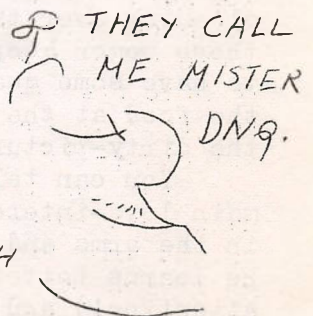 THEY CALL
ME MISTER
DNQ.
H